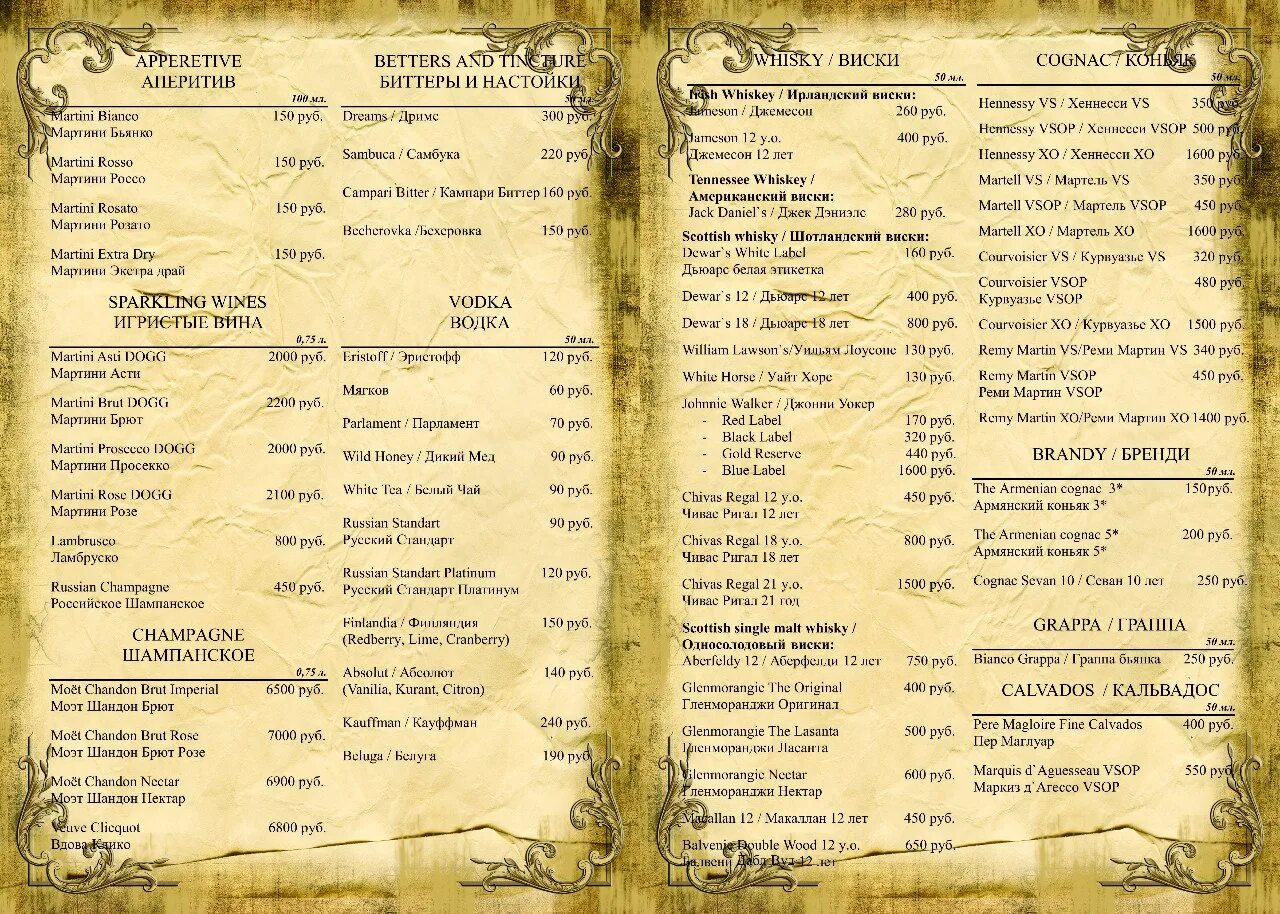 APPERETIVE
АПЕРИТИВ
100 мл.
Martini Bianco 150 руб.
Мартини Бьянко
Martini Rosso 150 руб.
Мартини Россо
Martini Rosato 150 руб.
Мартини Розато
Martini Extra Dry 150 руб.
Мартини Экстра драй
SPARKLING WINES
ИГРИСТЫЕ ВИНА
0,75 л.
Martini Asti DOGG 2000 руб.
Мартини Асти
Martini Brut DOGG 2200 руб.
Мартини Брют
Martini Prosecco DOGG 2000 руб.
Мартини Просекко
Martini Rose DOGG 2100 руб.
Мартини Розе
Lambrusco 800 руб.
Ламбруско
Russian Champagne 450 руб.
Российское Шампанское
CHAMPAGNE
ШАМПАНСКОЕ
0,75 л.
Moët Chandon Brut Imperial 6500 руб.
Моэт Шандон Брют
Moët Chandon Brut Rose 7000 руб.
Моэт Шандон Брют Розе
Moët Chandon Nectar 6900 руб.
Моэт Шандон Нектар
Veuve Clicquot 6800 руб.
Вдова Клико
BETTERS AND TINCTURE
БИТТЕРЫ И НАСТОЙКИ
50 мл.
Dreams / Дримс 300 руб.
Sambuca / Самбука 220 руб.
Campari Bitter / Кампари Биттер 160 руб.
Becherovka /Бехеровка 150 руб.
VODKA
ВОДКА
50 мл.
Eristoff / Эристофф 120 руб.
Мягков 60 руб.
Parlament / Парламент 70 руб.
Wild Honey / Дикий Мед 90 руб.
White Tea / Белый Чай 90 руб.
Russian Standart 90 руб.
Русский Стандарт
Russian Standart Platinum 120 руб.
Русский Стандарт Платинум
Finlandia / Финляндия 150 руб.
(Redberry, Lime, Cranberry)
Absolut / Абсолют 140 руб.
(Vanilia, Kurant, Citron)
Kauffman / Кауффман 240 руб.
Beluga / Белуга 190 руб.
WHISKY / ВИСКИ
50 мл.
Irish Whiskey / Ирландский виски:
Jameson / Джемесон 260 руб.
Jameson 12 y.o. 400 руб.
Джемесон 12 лет
Tennessee Whiskey /
Американский виски:
Jack Daniel`s / Джек Дэниэлс 280 руб.
Scottish whisky / Шотландский виски:
Dewar`s White Label 160 руб.
Дьюарс белая этикетка
Dewar`s 12 / Дьюарс 12 лет 400 руб.
Dewar`s 18 / Дьюарс 18 лет 800 руб.
William Lawson`s/Уильям Лоусонс 130 руб.
White Horse / Уайт Хорс 130 руб.
Johnnie Walker / Джонни Уокер
- Red Label 170 руб.
- Black Label 320 руб.
- Gold Reserve 440 руб.
- Blue Label 1600 руб.
Chivas Regal 12 y.o. 450 руб.
Чивас Ригал 12 лет
Chivas Regal 18 y.o. 800 руб.
Чивас Ригал 18 лет
Chivas Regal 21 y.o. 1500 руб.
Чивас Ригал 21 год
Scottish single malt whisky /
Односолодовый виски:
Aberfeldy 12 / Аберфелди 12 лет 750 руб.
Glenmorangie The Original 400 руб.
Гленморанджи Оригинал
Glenmorangie The Lasanta 500 руб.
Гленморанджи Ласанта
Glenmorangie Nectar 600 руб.
Гленморанджи Нектар
Macallan 12 / Макаллан 12 лет 450 руб.
Balvenie Double Wood 12 y.o. 650 руб.
Балвени Дабл Вуд 12 лет
COGNAC / КОНЬЯК
50 мл.
Hennessy VS / Хеннесси VS 350 руб.
Hennessy VSOP / Хеннесси VSOP 500 руб.
Hennessy XO / Хеннесси XO 1600 руб.
Martell VS / Мартель VS 350 руб.
Martell VSOP / Мартель VSOP 450 руб.
Martell XO / Мартель XO 1600 руб.
Courvoisier VS / Курвуазье VS 320 руб.
Courvoisier VSOP 480 руб.
Курвуазье VSOP
Courvoisier XO / Курвуазье XO 1500 руб.
Remy Martin VS/Реми Мартин VS 340 руб.
Remy Martin VSOP 450 руб.
Реми Мартин VSOP
Remy Martin XO/Реми Мартин XO 1400 руб.
BRANDY / БРЕНДИ
50 мл.
The Armenian cognac 3* 150руб.
Армянский коньяк 3*
The Armenian cognac 5* 200 руб.
Армянский коньяк 5*
Cognac Sevan 10 / Севан 10 лет 250 руб.
GRAPPA / ГРАППА
50 мл.
Bianco Grappa / Граппа бьянка 250 руб.
CALVADOS / КАЛЬВАДОС
50 мл.
Pere Magloire Fine Calvados 400 руб.
Пер Маглуар
Marquis d`Aguesseau VSOP 550 руб.
Маркиз д`Агессо VSOP